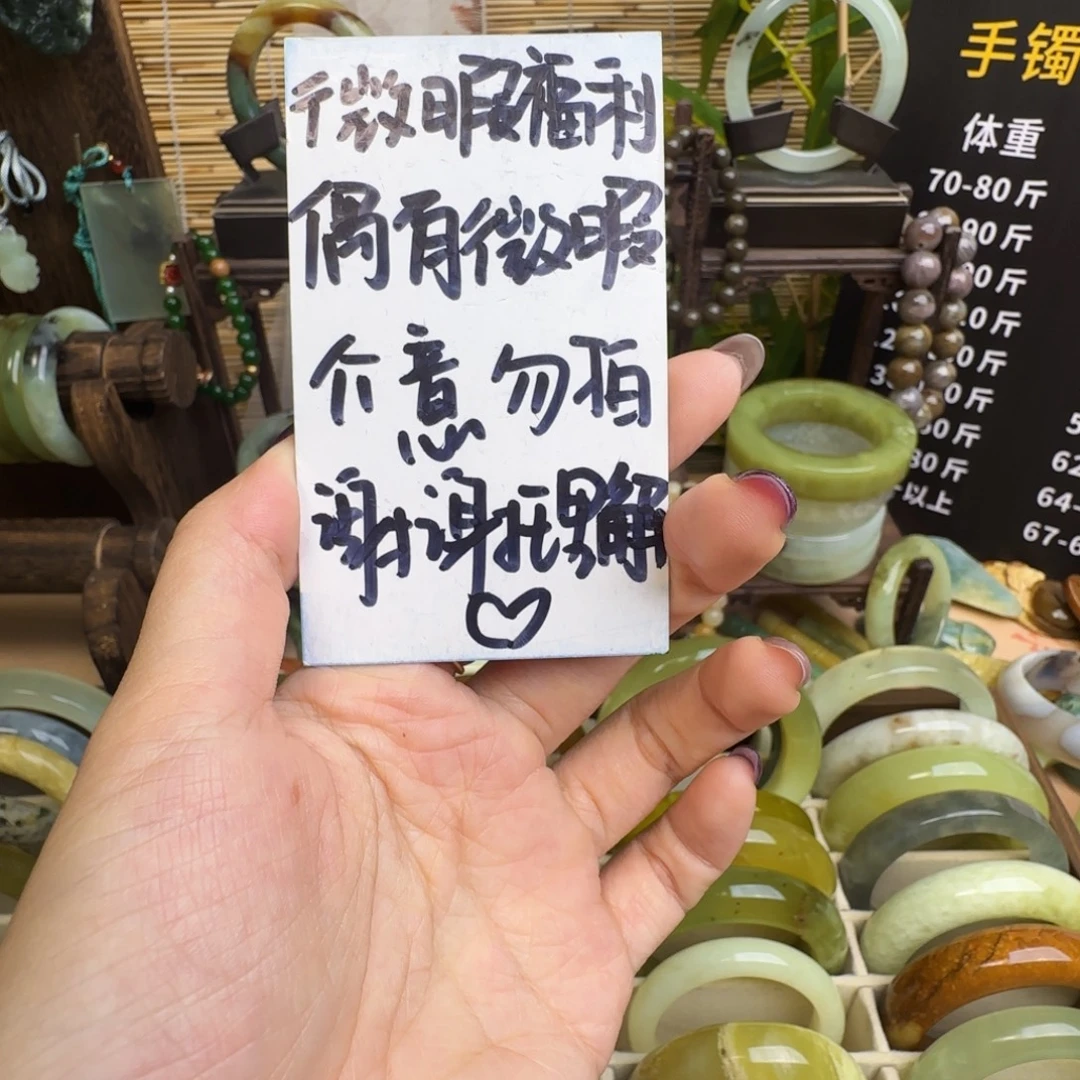 微暇福利
偶有微暇
介意勿拍
谢谢理解
手镯
体重
70-80斤
90斤
00斤
10斤
0斤
0斤
50斤
80斤
以上
62
64-
67-6